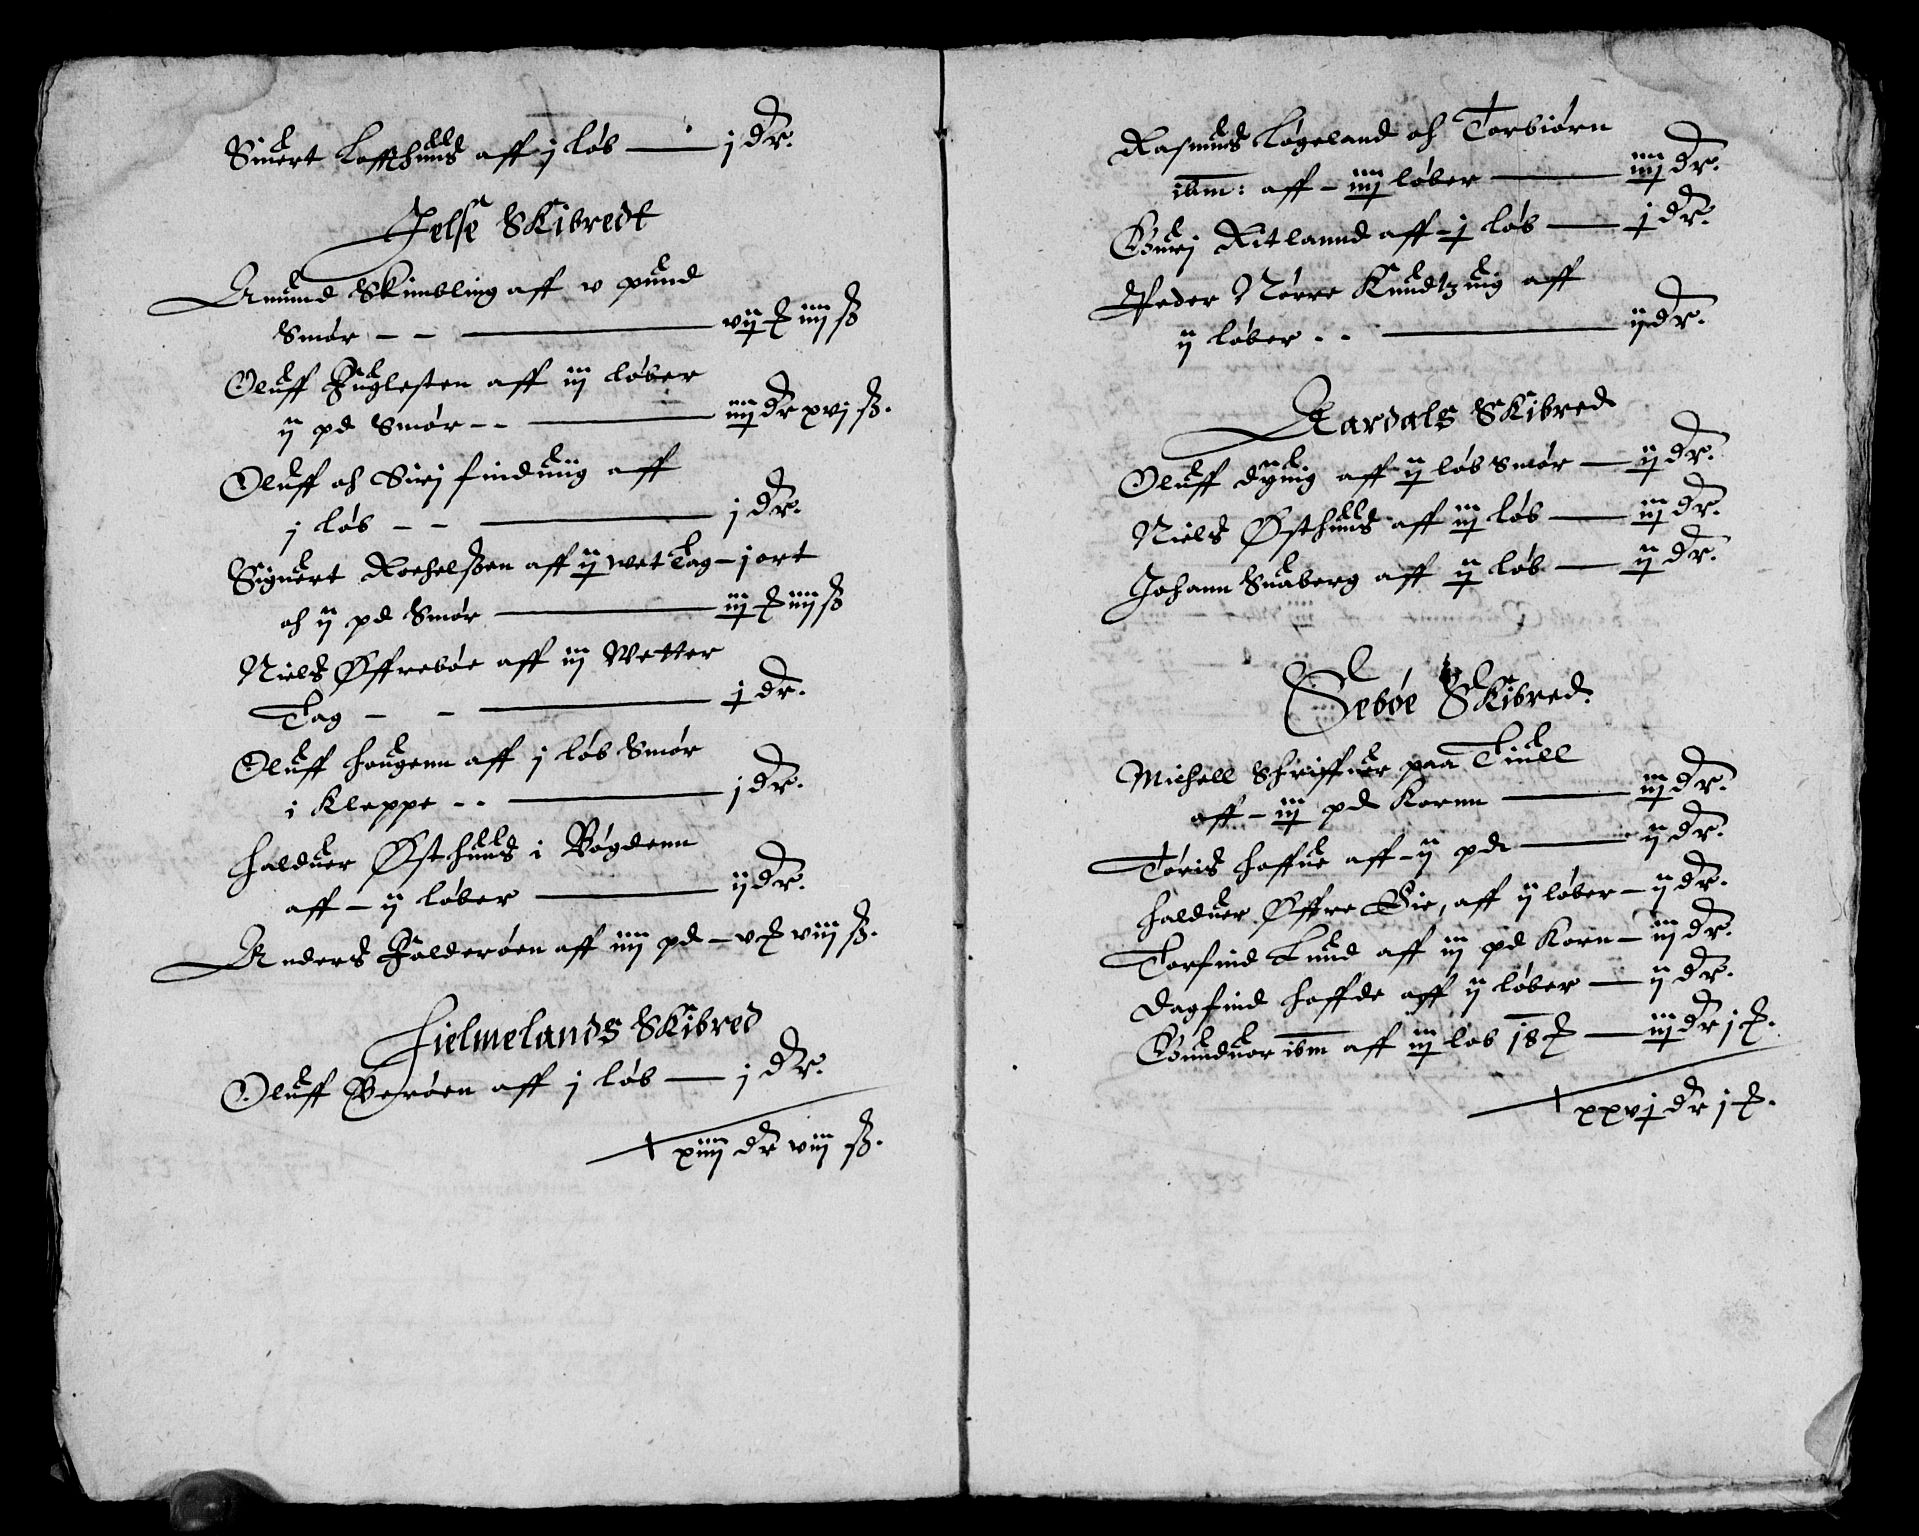 Siuert Lofthuus aff j løb — j dr.
Jelse Skibredt
Amund Skimbling aff v pund
Smør - - — vij ₰ iiij ß
Oluff Fuglesten aff iij løber
ij pd Smør - - — iiij dr xvj ß.
Oluff och Siri finduiig aff
j løb - - — j dr.
Siguert Rochelsßen aff ij wet Tag - j ort
och ij pd Smør — iij ₰ iiij ß
Niels Øffrebøe aff iij Wetter
Tag - - — j dr.
Oluff hougenn aff j løb Smør
i Kleppe - - — j dr.
halduer Østhuus i Bøgdenn
aff - ij løber — ij dr.
Anders Falderøen aff iiij pd - v ₰ viij ß.
Fielmelands Skibred
Oluff Berøen aff j løb — j dr.
xiiij dr viij ß.
Rasmus Løgeland och Torbiørn
ibm: aff - iiij løber — iiij dr.
Guri Ritlannd aff - j løb — j dr.
Peder Nørre Knudtzuig aff
ij løber - - — ij dr.
Aardals Skibred
Oluff dyuig aff ij løb smør — ij dr.
Niels Østhuus aff iij løb — iij dr.
Johann Snaberg aff ij løb — ij dr.
Sebøe Skibred.
Michell Schriffuer paa Tiull
aff - iij pd Kornn — iij dr.
Tøris hoffue aff - ij pd — ij dr.
halduer Øffre Eie, aff ij løber - ij dr.
Torfind Lund aff iij pd Korn - iij dr.
Dagfind hoffde aff ij løber — ij dr.
Gunduor ibm aff iij løb 18 ₰ — iij dr j ₰.
xxvj dr j ₰.